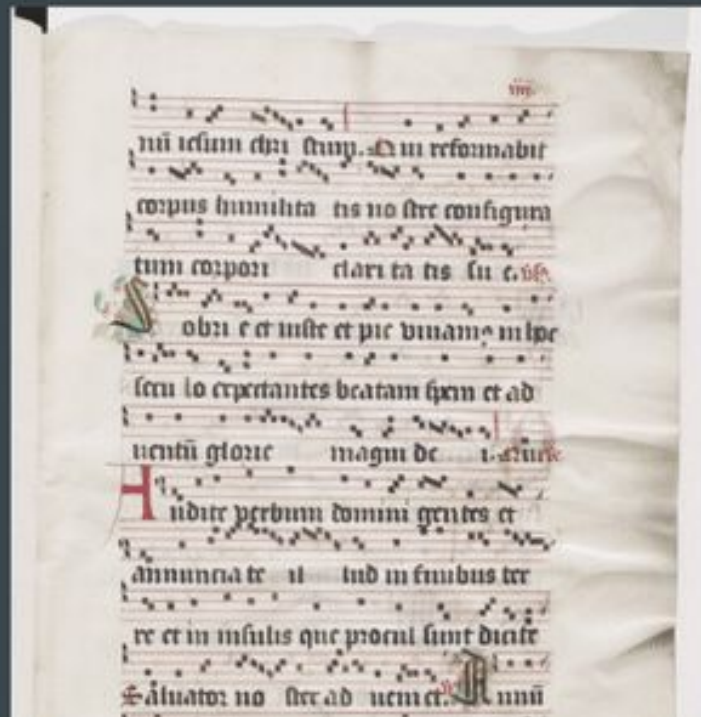 iiij.
nū iesum chri stum. Qui reformabit
corpus humilita tis no stre configura
tum corpori clari ta tis su e. v̄s.
Sobri e et iuste et pie viuamꝰ in hoc
secu lo expectantes beatam spem et ad
uentū glorie magni de i.
Audite verbum domini gentes et
annuncia te il lud in finibus ter
re et in insulis que procul sunt dicite
Saluator no ster ad ueniet. Annū